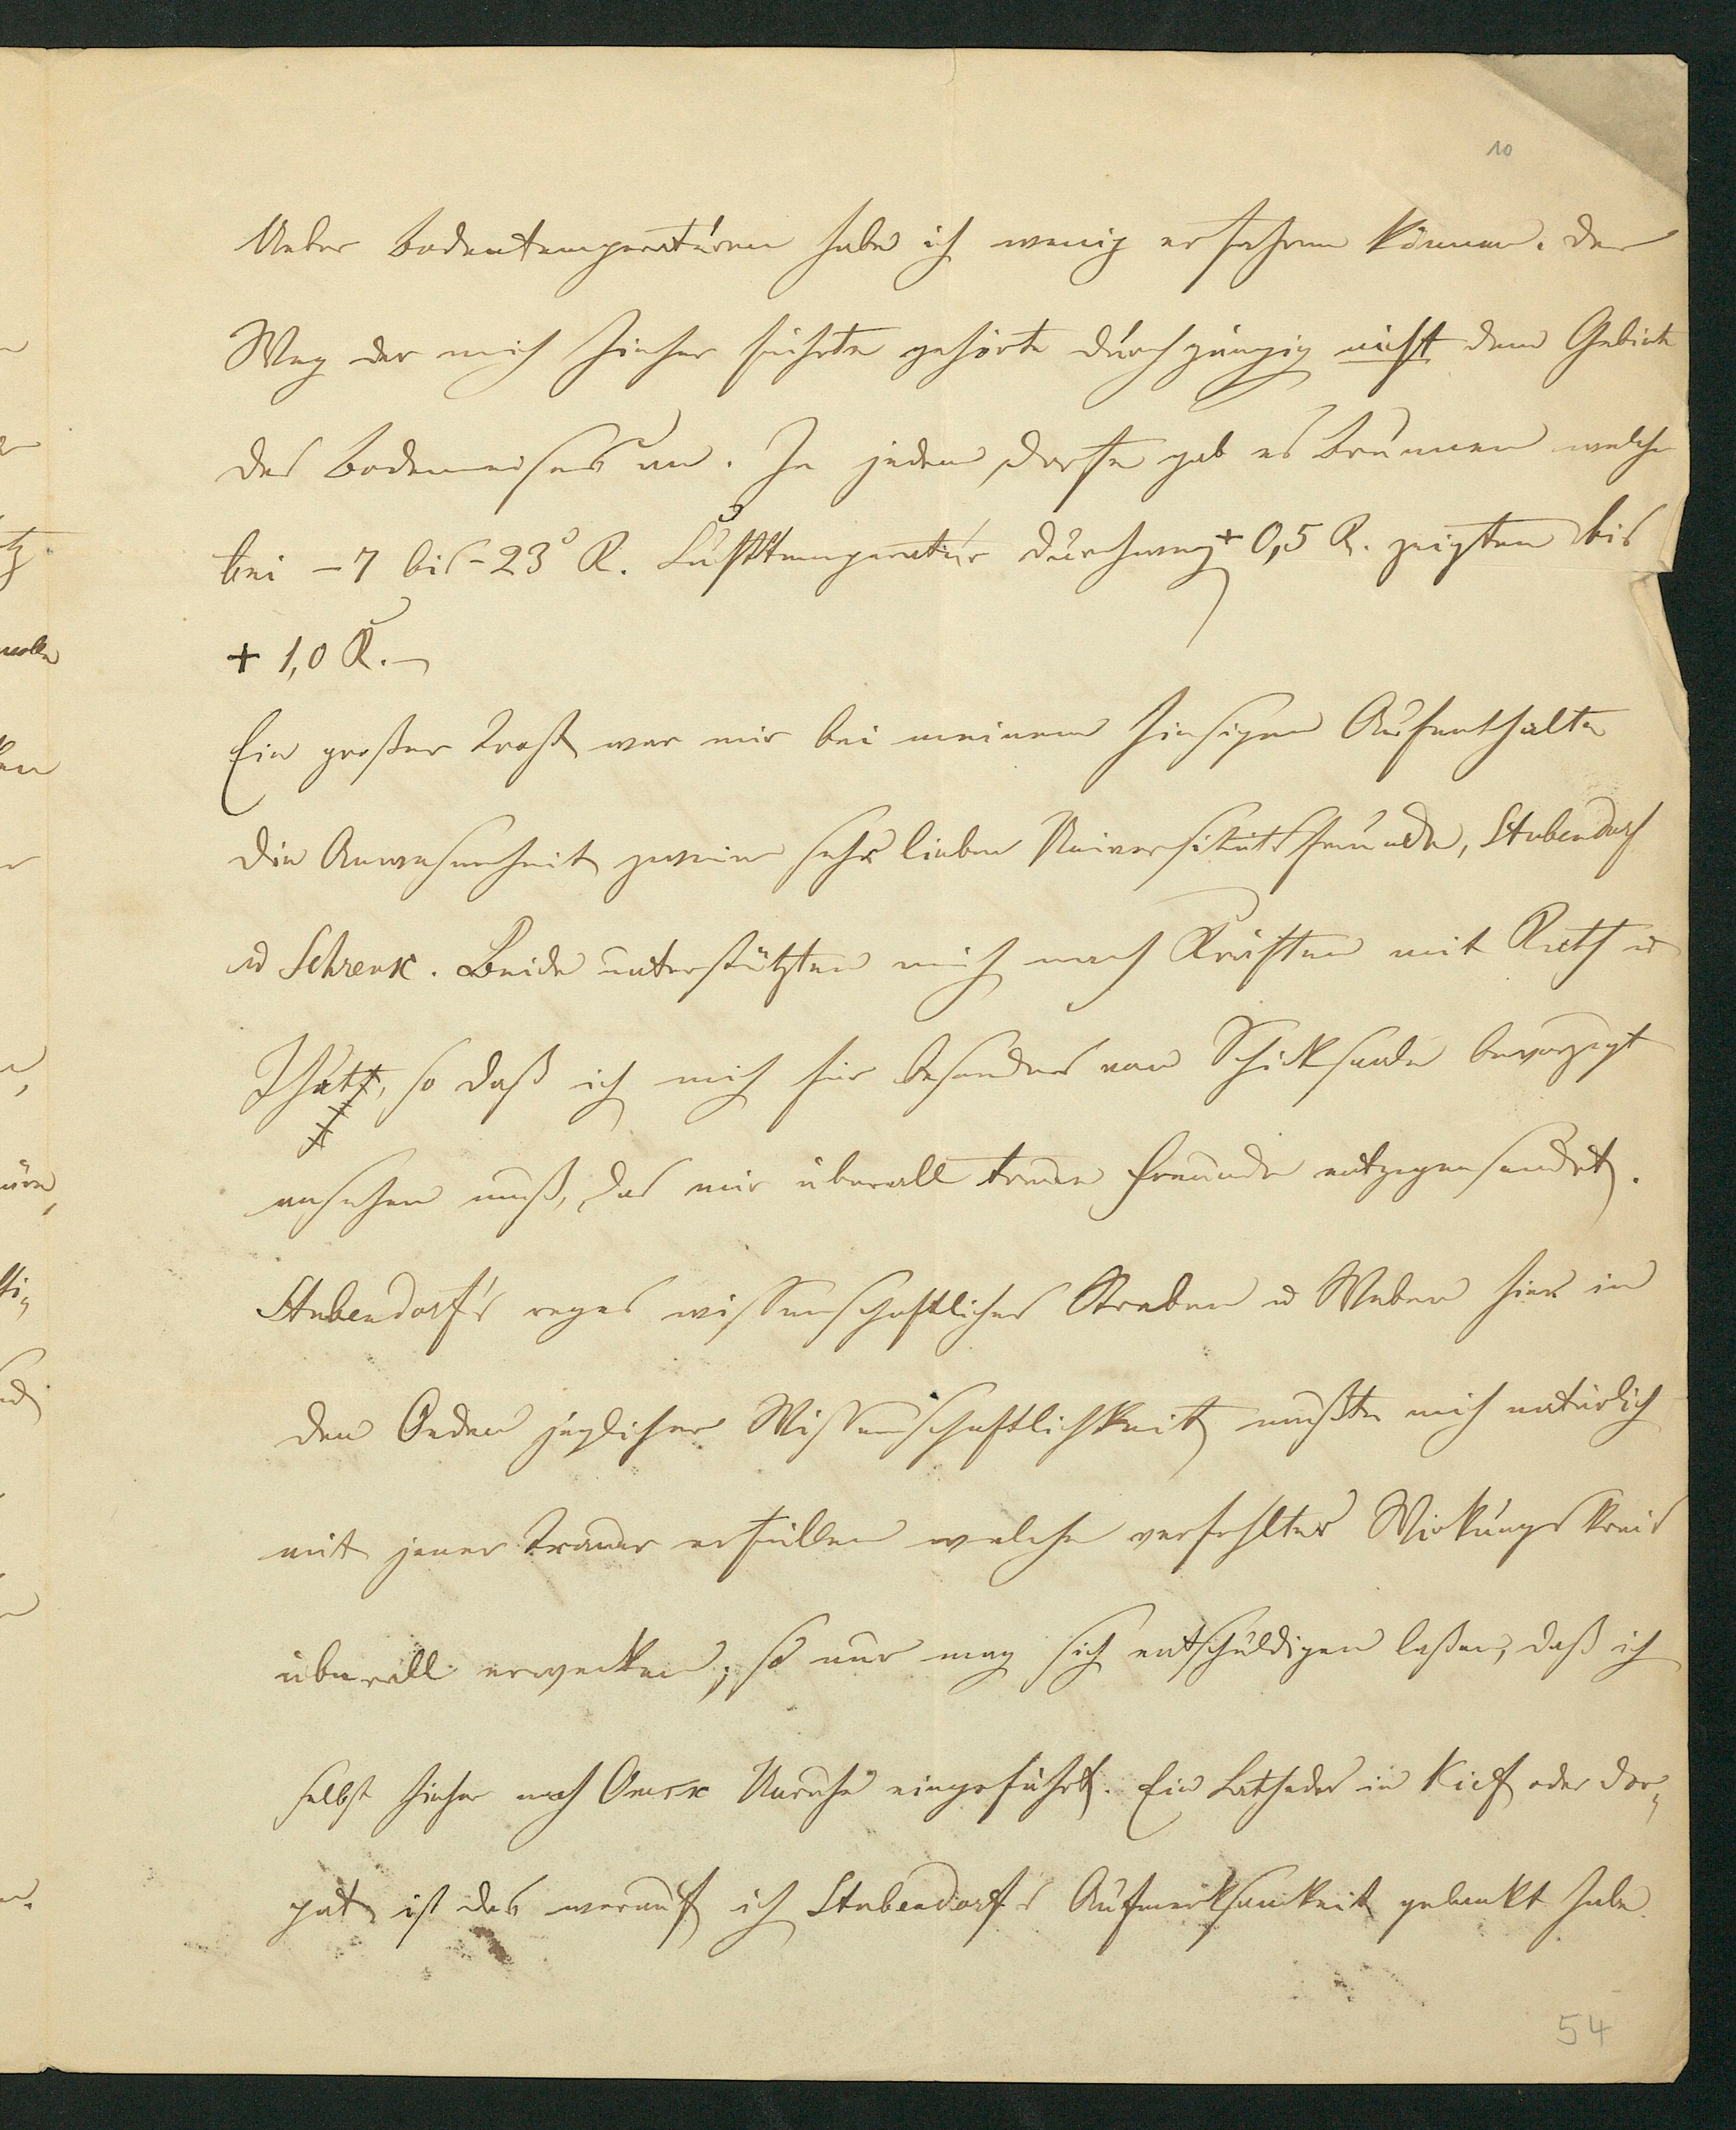 10
Ueber Bodentemperaturen habe ich wenig erfahren können. Der
Weg der mich hieher führte gehörte durchgängig nicht dem Gebiete
des Bodeneises an. In jedem Dorfe gab es Brunnen welche
bei – 7 bis – 23° R. Lufttemperatur durchweg + 0,5 R. zeigten bis
+ 1,0 R. –
Ein großer Trost war mir bei meinem hiesigen Aufenthalte
die Anwesenheit zweier sehr lieben Universitätsfreunde, Stubendorf
u Schrenk. Beide unterstützten mich nach Kräften mit Rath u
That, so daß ich mich für besonders vom Schicksale bevorzugt
ansehen muß, das mir überall treue Freunde entgegensendet.
Stubendorf's reges wissenschaftliches Streben u Weben hier in
den Oeden jeglicher Wissenschaftlichkeit mußte mich natürlich
mit jener Trauer erfüllen welche verfehlter Wirkungskreis
überall erwecken; so nur mag sich entschuldigen laßen, daß ich
selbst hieher nach Omsk Unruhe eingeführt. Ein Catheder in Kief oder Dor-
pat ist das worauf ich Stubendorfs Aufmerksamkeit gelenkt habe.
54